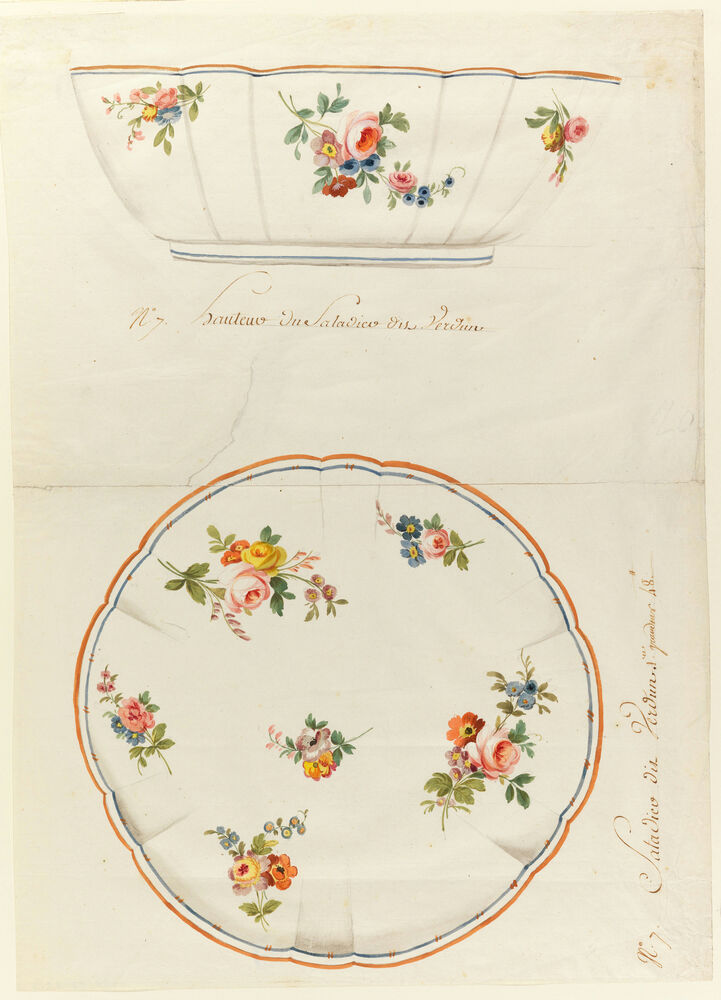 N.º 7. hauteur du Saladier dit Verdun
N.º 7. Saladier dit Verdun 1.re grandeur 48.#